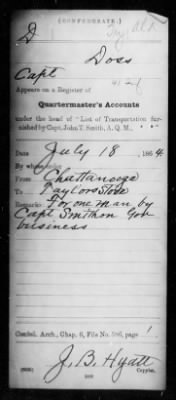 (CONFEDERATE.)
D
Doss
Capt
Appears on a Register of
Quartermaster's Accounts
under the head of "List of Transportation fur-
nished by Capt. John T. Smith, A. Q. M.
Date July 18, 1864.
By whom
From Chattanooga
To Taylors Store
Remarks: For one man by
Capt Smith on Gov
business
Confed. Arch., Chap. 5, File No. 586, page 1
J. B. Hyatt
Copyist.